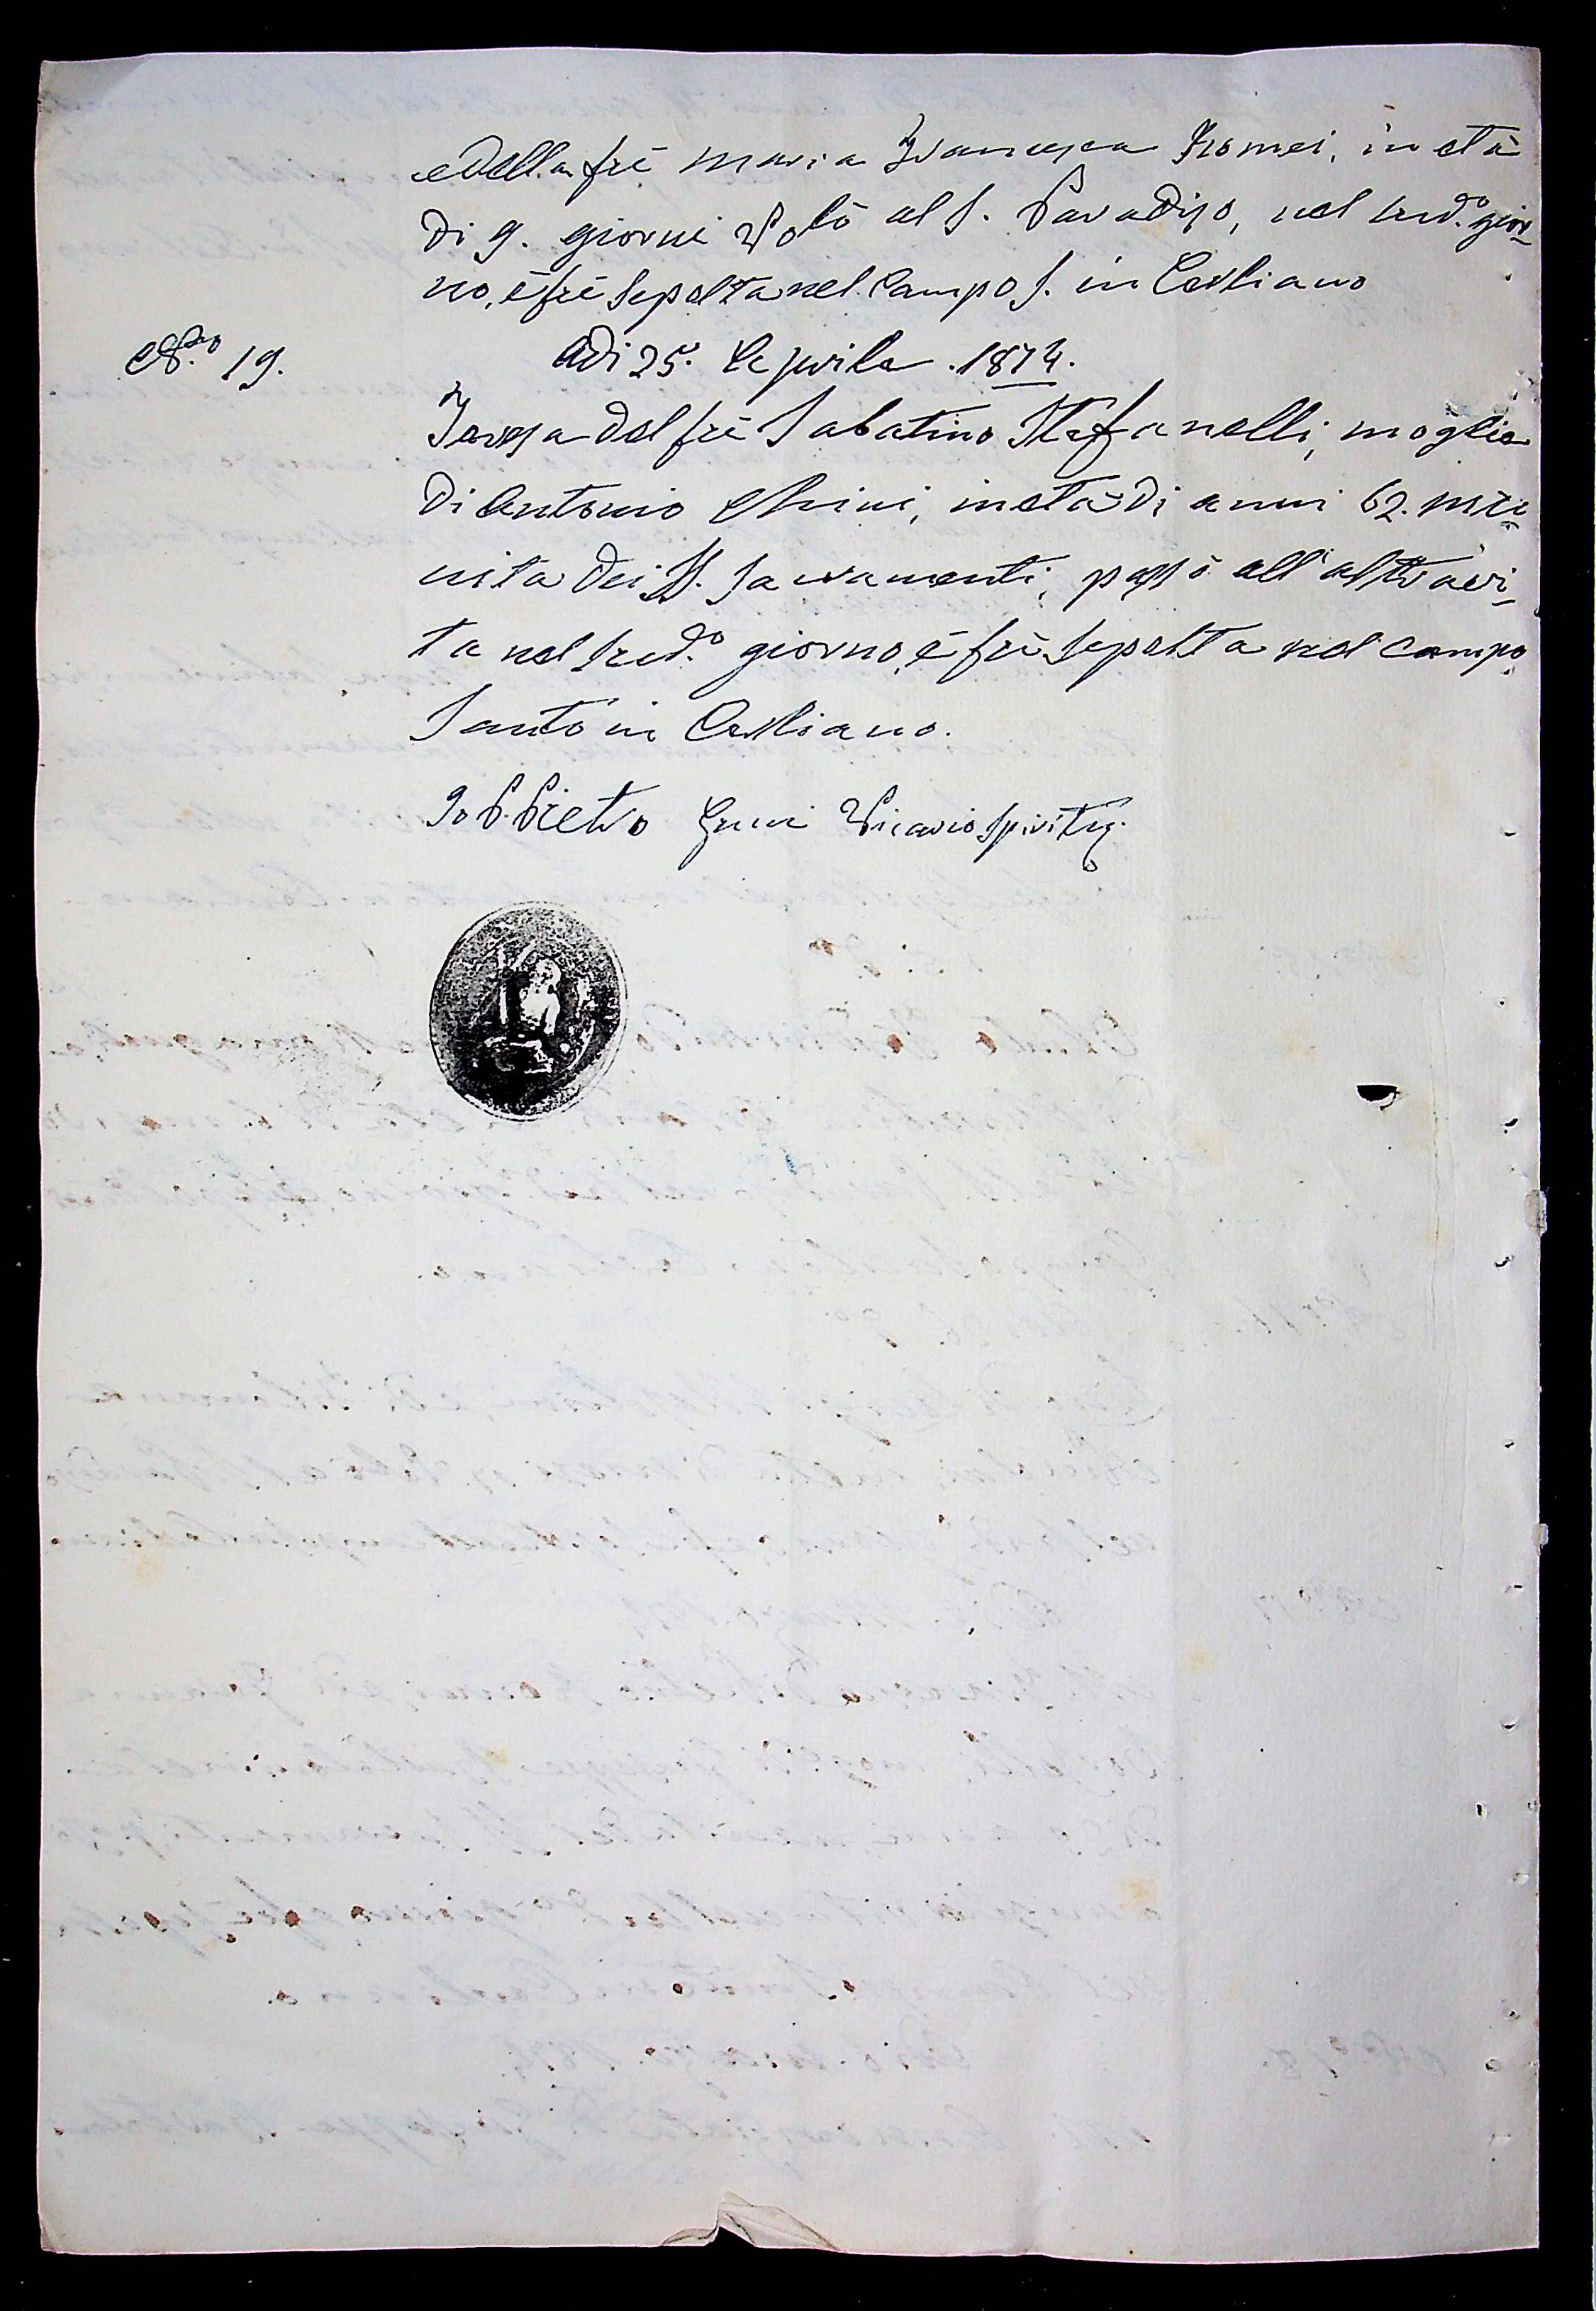 e della fù Maria Francesca Romei, in età
di 9. giorni Volò al S. Paradiso, nel sud.º gior-
no, è fù Sepolta nel Campo S. in Corliano
N.º 19.
Adi 25. Aprile. 1874.
Teresa del fù Sabatino Stefanelli, moglie
di Antonio Chini, in età di anni 62. mu-
nita dei SS. Sacramenti, passò all'altra vi-
ta nel sud.º giorno, è fù Sepolta nel campo
Santo in Corliano.
Io P. Pietro Vicario Spirit.